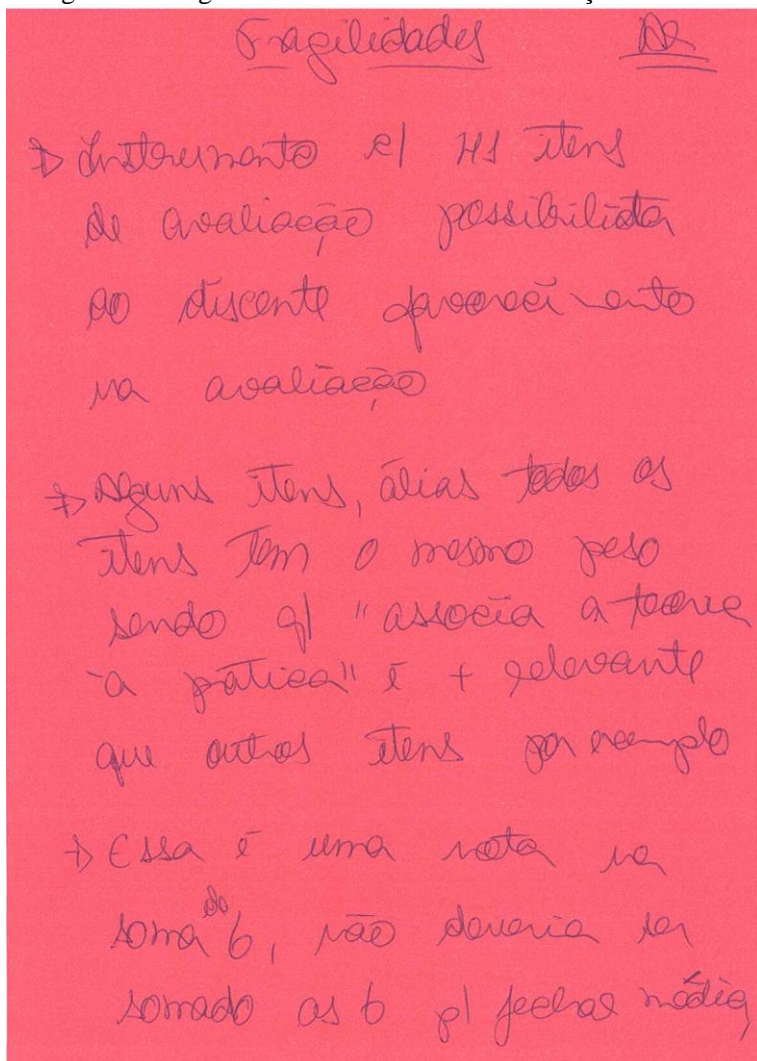 Fragilidades
→ Instrumento c/ itens
de avaliação possibilita
ao discente favorecimento
na avaliação
→ Alguns itens, álias todos os
itens tem o mesmo peso
sendo q/ "associa a teoria
à prática" é + relevante
que outros itens por exemplo
→ Essa é uma nota na
soma do 6, não deveria ser
somado as 6 p/ fechar média